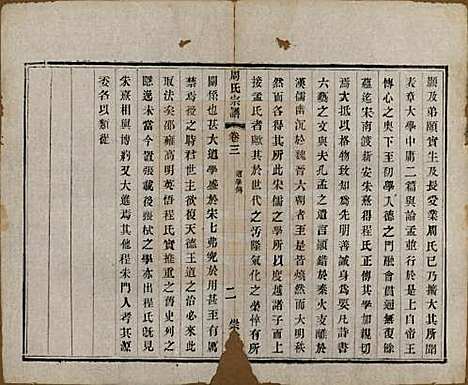 顥及弟頤實生及長受業周氏已乃擴大其所聞
表章大學中庸二篇與語孟並行於是上自帝王
傳心之奧下至初學入德之門融會貫通無復餘
蘊迄宋南渡新安朱熹得程氏正傳其學加親切
焉大抵以格物致知為先明善誠身為要凡詩書
六藝之文與夫孔孟之遺言顛錯於秦火支離於
漢儒幽沉於魏晉六朝者至是皆煥然而大明秩
然而各得其所此宋儒之學所以度越諸子而上
接孟氏者歟其於世代之汚隆氣化之榮悴有所
周氏宗譜
卷三
道學傳
二
關係也甚大道學盛於宋宋弗究於用甚至有厲
禁焉後之時君世主欲復天德王道之治必來此
取法矣邵雍高明英悟程氏實推重之舊史列之
隱逸未當今置張載後張栻之學亦出程氏既見
朱熹相與博約又大進焉其他程朱門人考其源
委各以類從